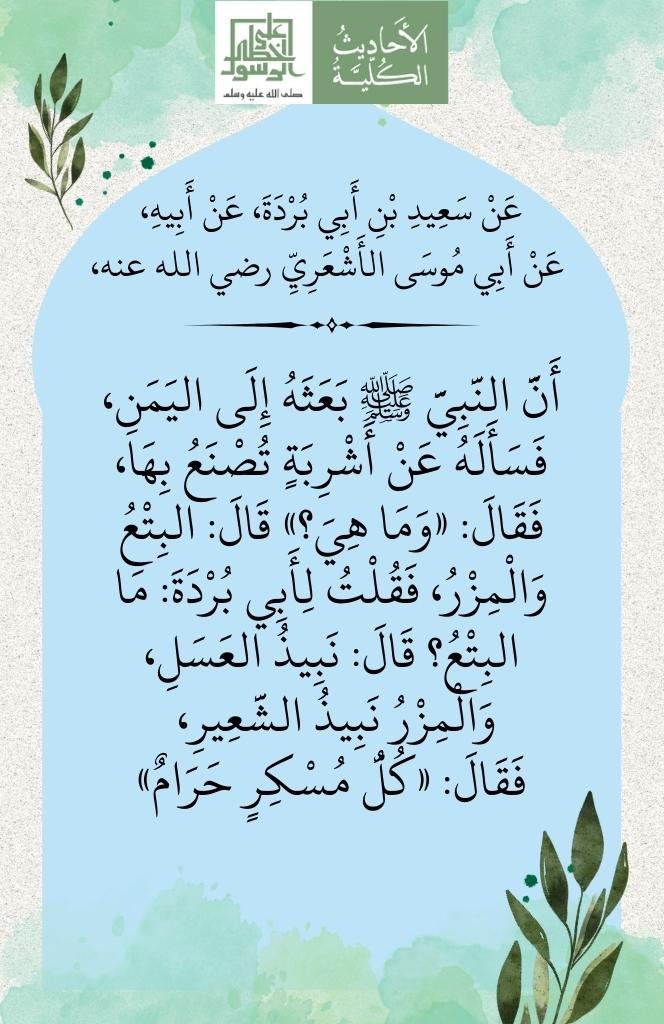 الأَحَادِيثُ
الكُلِّيَّةُ
على
خطى
الرسول
صلى الله عليه وسلم
عَنْ سَعِيدِ بْنِ أَبِي بُرْدَةَ، عَنْ أَبِيهِ،
عَنْ أَبِي مُوسَى الأَشْعَرِيِّ رضي الله عنه،
أَنّ النّبِيّ ﷺ بَعَثَهُ إِلَى اليَمَنِ،
فَسَأَلَهُ عَنْ أَشْرِبَةٍ تُصْنَعُ بِهَا،
فَقَالَ: «وَمَا هِيَ؟» قَالَ: البِتْعُ
وَالْمِزْرُ، فَقُلْتُ لِأَبِي بُرْدَةَ: مَا
البِتْعُ؟ قَالَ: نَبِيذُ العَسَلِ،
وَالْمِزْرُ نَبِيذُ الشّعِيرِ،
فَقَالَ: «كُلُّ مُسْكِرٍ حَرَامٌ»